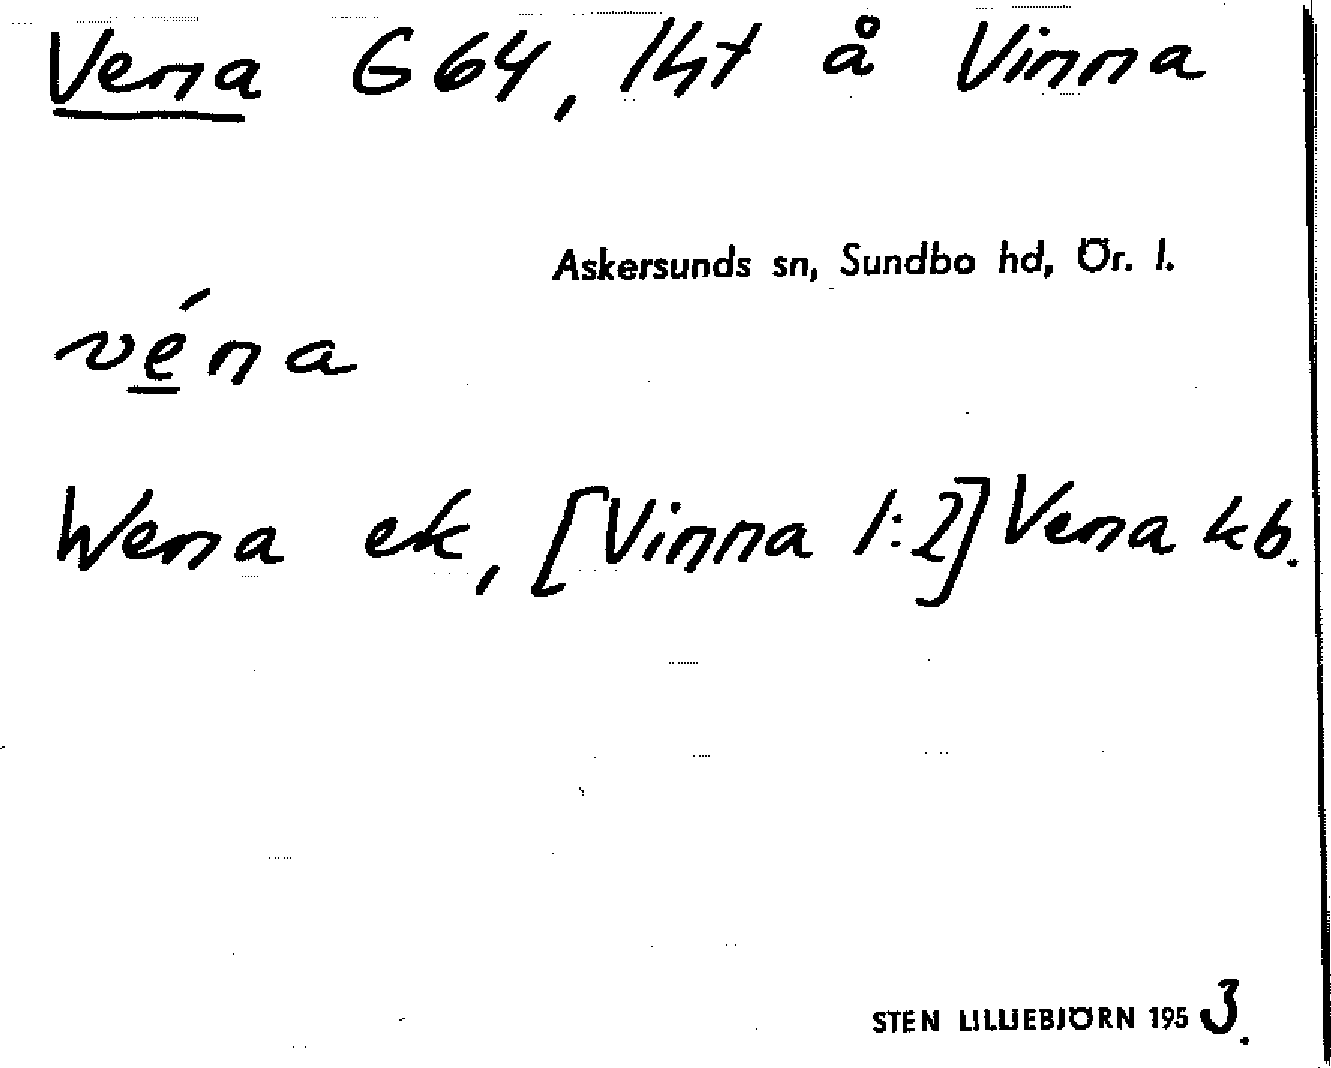 Vena G64, lht å Vinna
Askersunds sn, Sundbo hd, Ör. l.
véna
Wena ek, [Vinna 1:2] Vena kb.
STEN LILLIEBJÖRN 1953.